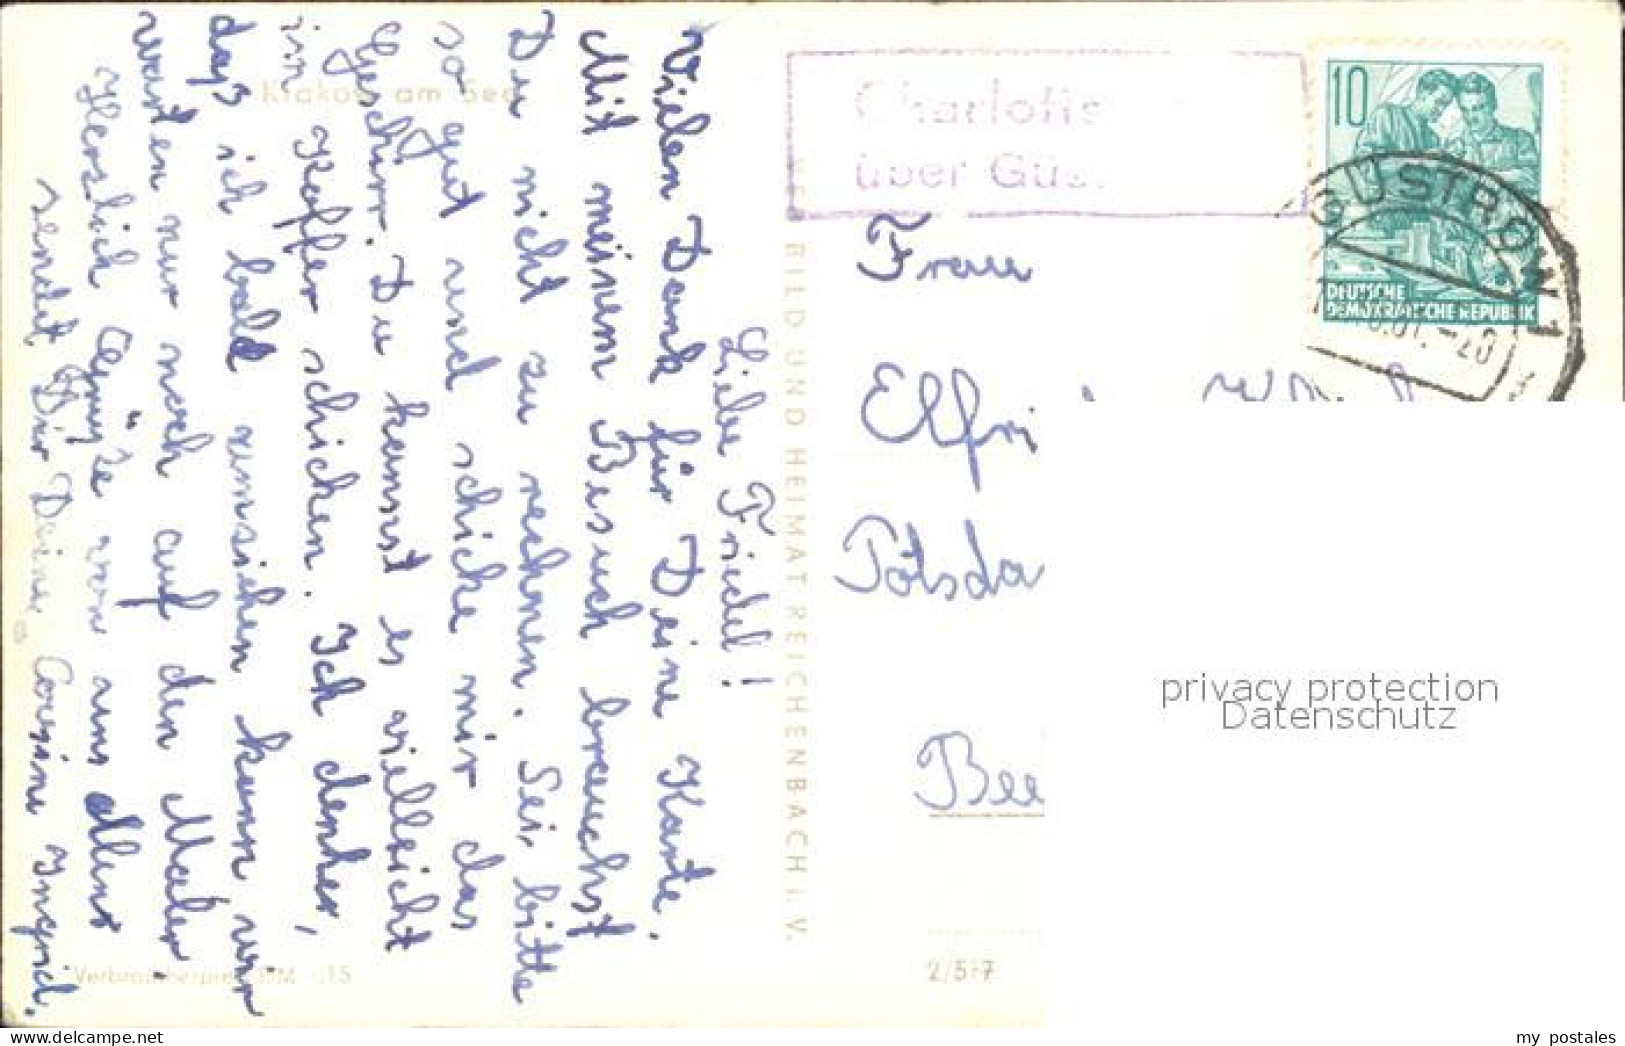 Krakow am See
Liebe Friedel!
Vielen Dank für Deine Karte.
Mit meinem Besuch brauchst
Du nicht zu rechnen. Sei, bitte
so gut und schicke mir das
Geschirr. Du kannst es vielleicht
in Koffer schicken. Ich denke,
daß ich bald umziehen kann, wir
warten nur noch auf den Maler.
Herzlich Grüße von uns allen
sendet Dir Deine Cousine Ingrid.
Verbraucherpreis DM -.15
VEB BILD UND HEIMAT REICHENBACH I. V.
2/577
Charlotte
über Güs
10
DEUTSCHE
DEMOKRATISCHE REPUBLIK
GÜSTROW 1
Frau
Elfri
Potsda
Bee
privacy protection
Datenschutz
my postales